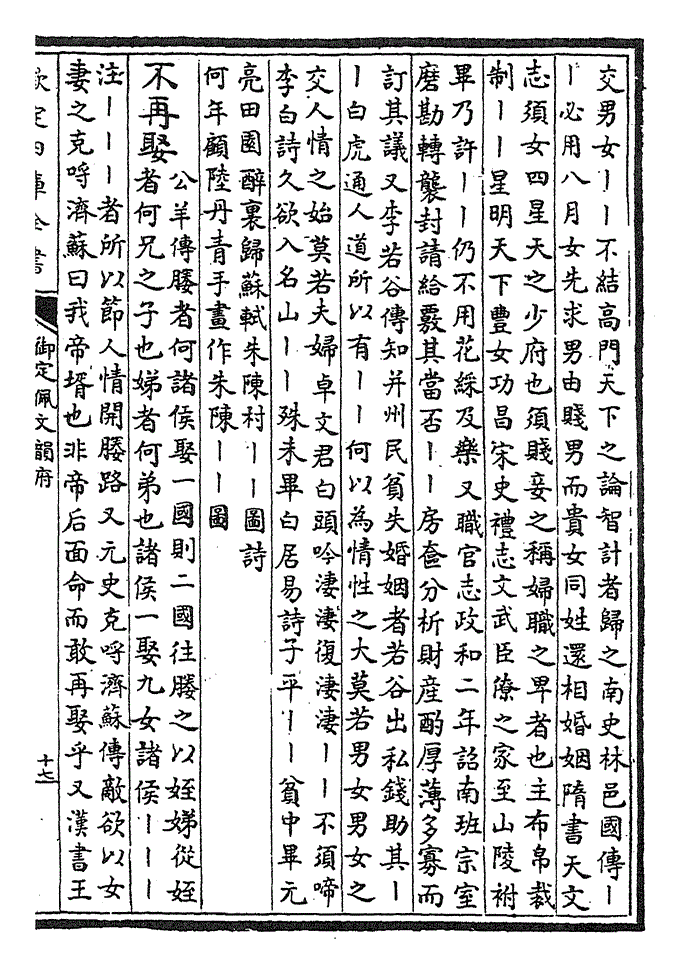 交男女丨丨不結高門天下之論智計者歸之南史林邑國傳丨
丨必用八月女先求男由賤男而貴女同姓還相婚姻隋書天文
志須女四星天之少府也須賤妾之稱婦職之卑者也主布帛裁
制丨丨星明天下豐女功昌宋史禮志文武臣僚之家至山陵祔
畢乃許丨丨仍不用花綵及樂又職官志政和二年詔南班宗室
磨勘轉襲封請給覈其當否丨丨房奩分析財産酌厚薄多寡而
訂其議又李若谷傳知并州民貧失婚姻者若谷出私錢助其丨
丨白虎通人道所以有丨丨何以為情性之大莫若男女男女之
交人情之始莫若夫婦卓文君白頭吟淒淒復淒淒丨丨不須啼
李白詩久欲入名山丨丨殊未畢白居易詩子平丨丨貧中畢元
亮田園醉裏歸蘇軾朱陳村丨丨圖詩
何年顧陸丹青手畫作朱陳丨丨圖
不再娶公羊傳媵者何諸侯娶一國則二國往媵之以姪娣從姪
者何兄之子也娣者何弟也諸侯一娶九女諸侯丨丨丨
注丨丨丨者所以節人情開媵路又元史克呼濟蘇傳敵欲以女
妻之克呼濟蘇曰我帝壻也非帝后面命而敢再娶乎又漢書王
欽定四庫全書
御定佩文韻府
十七